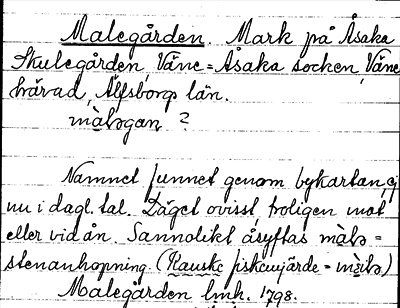 Malegården. Mark på Åsaka
Skulegården, Väne-Åsaka socken, Väne
härad, Älfsborgs län.
?
Namnet funnet genom bykartan, ej
nu i dagl. tal. Läget ovisst, troligen mot
eller vid ån. Sannolikt åsyftas
stenanhopning (
Malegården lmh. 1798.